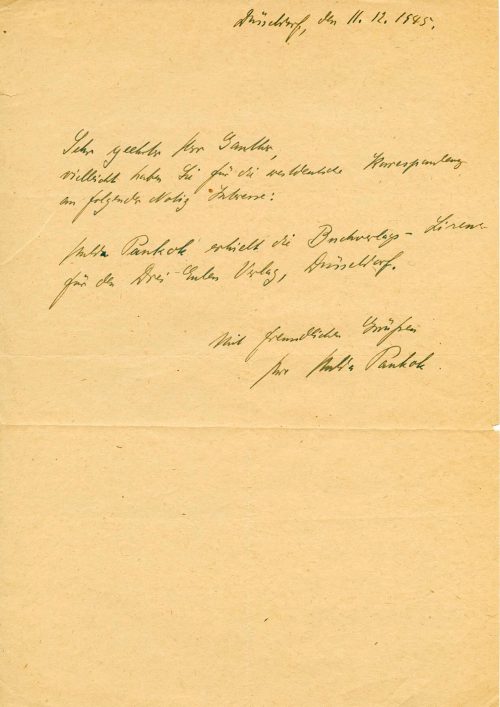 Düsseldorf, den 11.12.1945.
Sehr geehrter Herr
vielleicht haben Sie für die westdeutsche Korrespondenz
an folgender Notiz Interesse:
Hulda Pankok erhielt die Buchverlags-Lizenz
für den Drei-Eulen Verlag, Düsseldorf.
Mit freundlichen Grüßen
Ihre Hulda Pankok.